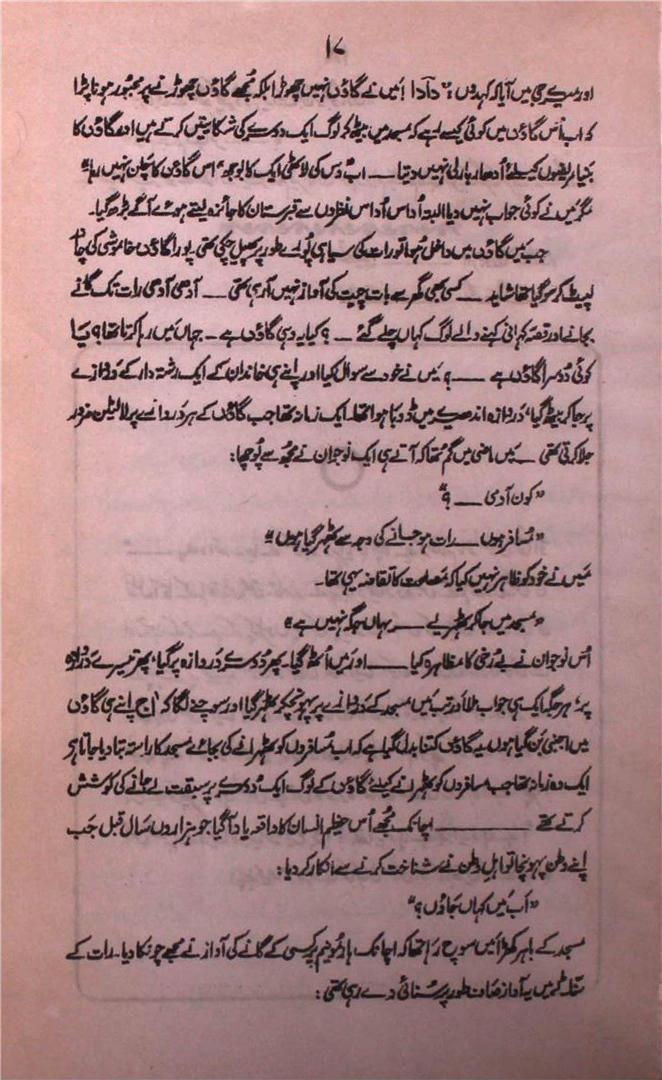 ۱۷
اور میرے جی میں آیا کہ کہدوں: "دادا! میں نے گاؤں نہیں چھوڑا بلکہ مجھے گاؤں چھوڑنے پر مجبور ہونا پڑا
کہ اب اس گاؤں میں کوئی کیسے رہے کہ مسجد میں بیٹھ کر لوگ ایک دوسرے کی شکایتیں کرتے ہیں اور گاؤں کا
بنیا مریضوں کیلئے اُدھار بارلی نہیں دیتا ـــ اب دس کی لاٹھی ایک کا بوجھ، اس گاؤں کا چلن نہیں رہا"
مگر میں نے کوئی جواب نہیں دیا البتہ اُداس اُداس نظروں سے قبرستان کا جائزہ لیتے ہوئے آگے بڑھ گیا۔
جب میں گاؤں میں داخل ہوا تو رات کی سیاہی پورے طور پر پھیل چکی تھی۔ پورا گاؤں خاموشی کی چادر
لپیٹ کر سو گیا تھا شاید ـــ کسی بھی گھر سے بات چیت کی آواز نہیں آرہی تھی ـــ آدھی آدھی رات تک گانے
بجانے اور قصہ کہانی کہنے والے لوگ کہاں چلے گئے ـــ؟ کیا یہ وہی گاؤں ہے ـ جہاں میں رہا کرتا تھا؟ یا
کوئی دوسرا گاؤں ہے ـــ؟ میں نے خود سے سوال کیا اور اپنے ہی خاندان کے ایک رشتہ دار کے دروازے
پر جا کر بیٹھ گیا، دروازہ اندھیرے میں ڈوبا ہوا تھا۔ ایک زمانہ تھا جب گاؤں کے ہر دروازے پر لالٹین ضرور
جلا کرتی تھی ـــ میں ماضی میں گم تھا کہ آتے ہی ایک نوجوان نے مجھ سے پوچھا:
"کون آدمی ـــ؟"
"مسافر ہوں ـــ رات ہو جانے کی وجہ سے ٹھہر گیا ہوں"
میں نے خود کو ظاہر نہیں کیا کہ مصلحت کا تقاضہ یہی تھا۔
"مسجد میں جا کر ٹھہریے ـــ یہاں جگہ نہیں ہے"
اُس نوجوان نے بے رخی کا مظاہرہ کیا ـــ اور میں اُٹھ گیا۔ پھر دوسرے دروازہ پر گیا، پھر تیسرے دروازہ
پر، ہر جگہ ایک ہی جواب ملا اور تب میں مسجد کے دروازے پر پہونچکر ٹھہر گیا اور سوچنے لگا کہ "آج اپنے ہی گاؤں
میں اجنبی بن گیا ہوں یہ گاؤں کتنا بدل گیا ہے کہ اب مسافروں کو ٹھہرانے کی بجائے مسجد کا راستہ بتا دیا جاتا ہے
ایک وہ زمانہ تھا جب مسافروں کو ٹھہرانے کیلئے گاؤں کے لوگ ایک دوسرے پر سبقت لے جانے کی کوشش
کرتے تھے ـــــــ اچانک مجھے اُس عظیم انسان کا واقعہ یاد آگیا جو ہزاروں سال قبل جب
اپنے وطن پہونچا تو اہلِ وطن نے شناخت کرنے سے انکار کر دیا:
"اب میں کہاں جاؤں؟"
مسجد کے باہر کھڑا میں سوچ رہا تھا کہ اچانک ہارمونیم پر کسی کے گانے کی آواز نے مجھے چونکا دیا۔ رات کے
سناٹے میں یہ آواز صاف طور پر سنائی دے رہی تھی: